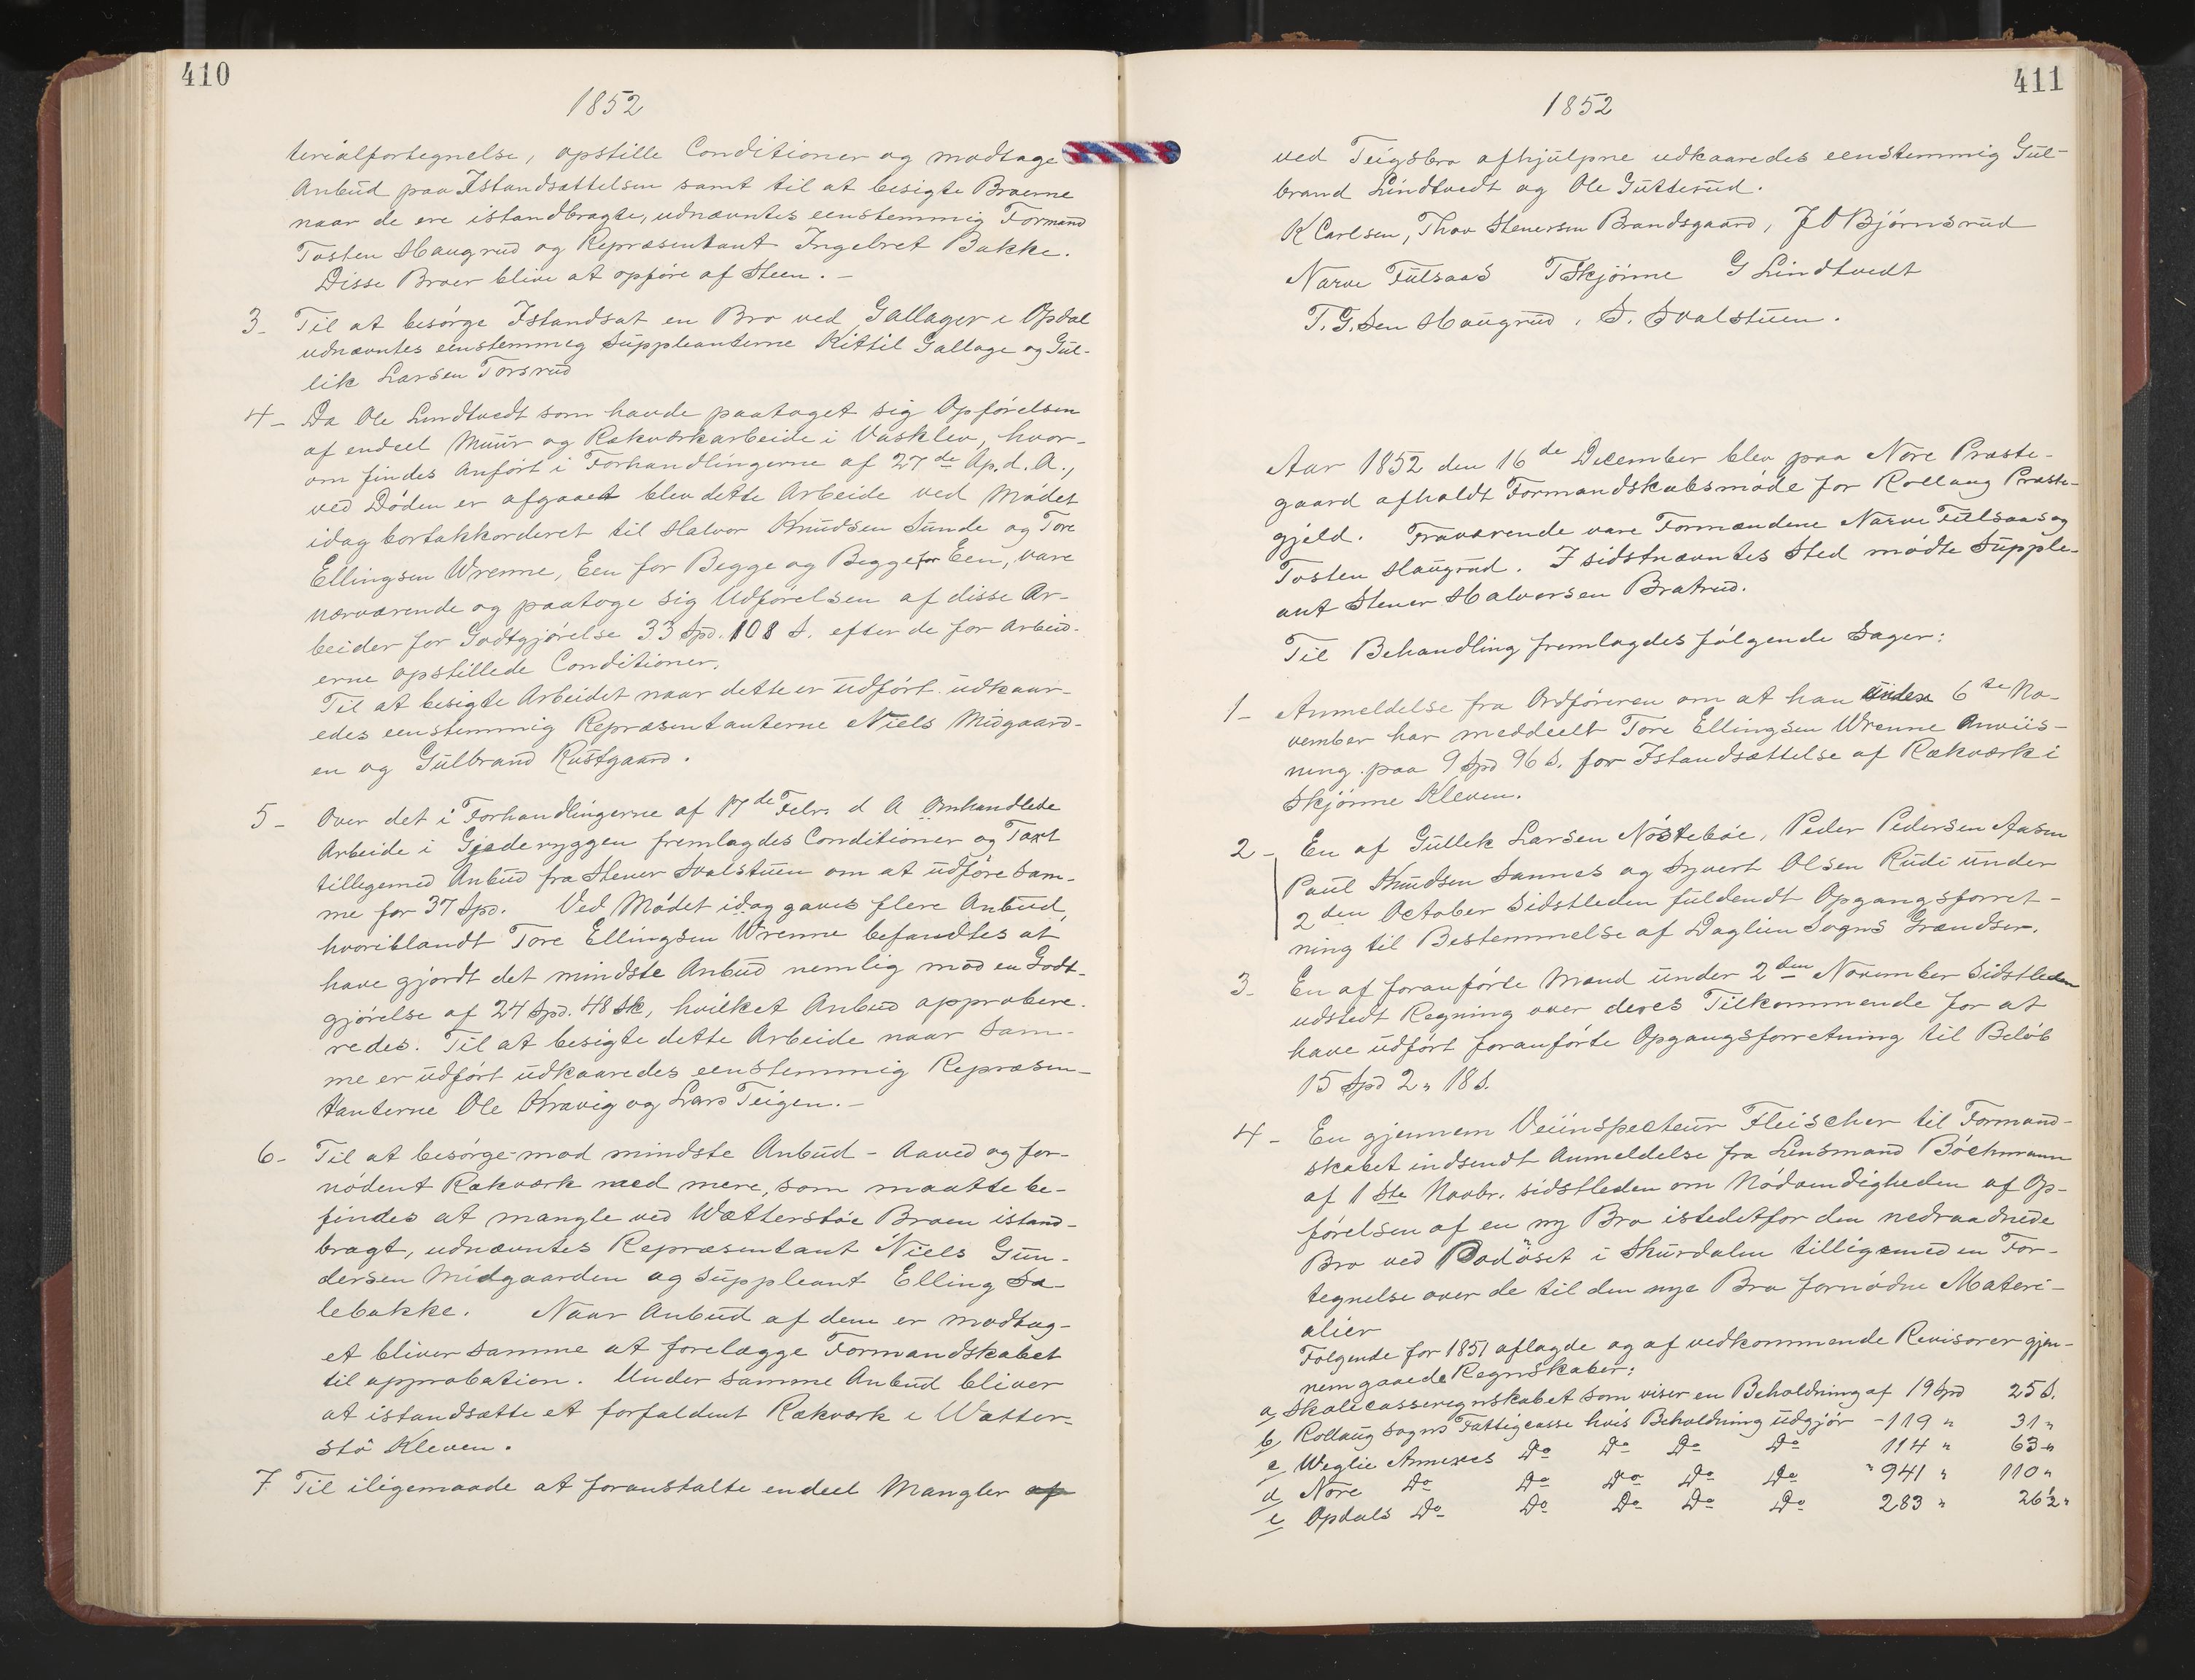 410
1852
terialfortegnelse, opstille Conditioner og modtage
Anbud paa Istandsættelsen samt til at besigte Broerne
naar de ere istandbragte, udnævntes eenstemmig Formand
Tosten Haugrud og Repræsentant Ingebret Bakke.
Disse Broer blive at opføre af Steen. –
3_ Til at besørge Istandsat en Bro ved Gallager i Opdal
udnævntes eenstemmeg Suppleanterne Kittil Gallage og Gul-
lik Larsen Torsrud
4_ Da Ole Lindtvedt som havde paataget sig Opførelsen
af endeel Muur og Rækværkarbeide i Vasklev, hvor-
om findes Anført i Forhandlingerne af 27de Ap. d. A.,
ved Døden er afgaaet blev dette Arbeide ved Mødet
idag bortakkorderet til Halvor Knudsen Sunde og Tore
Ellingsen Wrenne, Een for Begge og Begge for Een, vare
nærværende og paatoge sig Udførelsen af disse Ar-
beider for Godtgjørelse 33 Spd. 108 S. efter de for Arbeid-
erne opstillede Conditioner.
Til at besigte Arbeidet naar dette er udført udkaar-
edes eenstemmig Repræsentanterne Niels Midgaard-
en og Gulbrand Rustgaard.
5_ Over det i Forhandlingerne af 17de Febr. d A Omhandlede
Arbeide i Gjederyggen fremlagdes Conditioner og Taxt
tilligemed Anbud fra Stener Svalstuen om at udføre sam-
me for 37 Spd. Ved Mødet idag gaves flere Anbud,
hvoriblandt Tore Ellingsen Wrenne befandtes at
have gjordt det mindste Anbud nemlig mod en Godt-
gjørelse af 24 Spd. 48 Sk, hvilket Anbud approbere-
redes. Til at besigte dette Arbeide naar sam-
me er udført udkaaredes eenstemmig Repræsen-
tanterne Ole Kravig og Lars Teigen. –
6_ Til at besørge mod mindste Anbud – Aaved og for-
nødent Rækværk med mere, som maatte be-
findes at mangle ved Wætterstøe Broen istand-
bragt, udnævntes Repræsentant Niels Gun-
dersen Midgaarden og Suppleant Elling Sa-
lebakke. Naar Anbud af dem er modtag-
et bliver samme at forelægge Formandskabet
til approbation. Under samme Anbud bliver
at istandsætte et forfaldent Rækværk i Wætter-
stø Kleven.
7. Til iligemaade at foranstalte endeel Mangler af
411
1852
ved Teigsbro afhjulpne udkaaredes eenstemmig Gul-
brand Lindtvedt og Ole Gutterud.
K Carlsen, Thov Stenersen Brandsgaard, J O Bjørnsrud
Narve Fulsaas T Skjønne G Lindtvedt
T. G. Sen Haugrud, S. Svalstuen.
Aar 1852 den 16de December blev paa Nore Præste-
gaard afholdt Formandskabsmøde for Rollaug Præste-
gjeld. Fraværende vare Formændene Narve Fulsaas og
Tosten Haugrud. I sidstnævntes Sted mødte Supple-
ant Stener Halvorsen Bratrud.
Til Behandling fremlagdes følgende Sager:
1_ Anmeldelse fra Ordføreren om at han under 6te No-
vember har meddeelt Tore Ellingsen Wrenne Anviis-
ning paa 9 Spd 96 S. for Istandsættelse af Rækværk i
Skjønne Kleven.
2_ En af Gullek Larsen Nøstebøe, Peder Pedersen Aasen
Paul Knudsen Sannes og Syvert Olsen Rudi under
2den October Sidstleden fuldendt Opgangsforret-
ning til Bestemmelse af Daglien Sogns Grændser.
3_ En af foranførte Mænd under 2den November Sidstleden
udstedt Regning over deres Tilkommende for at
have udført foranførte Opgangsforretning til Beløb
15 Spd 2 " 18 S.
4_ En gjennem Veiinspecteur Fleischer til Formand-
skabet indsendt Anmeldelse fra Lensmand Bøchmann
af 1ste Novbr. sidstleden om Nødvendigheden af Op-
førelsen af en ny Bro istedetfor den nedraadnede
Bro ved Rodøset i Skurdalen tilligemed en For-
tegnelse over de til den nye Bro fornødne Materi-
alier
Følgende for 1851 aflagde og af vedkommende Revisorer gjen-
nemgaaede Regnskaber:
a, Skolecasseregnskabet som viser en Beholdning af 19 Spd 25 S.
b, Rollaug Sogns Fattigcasse hvis Beholdning udgjør – 119 " 31 "
c, Weglie Annexes Do Do Do Do 114 " 63 "
d, Nore Do Do Do Do Do " 941 " 110 "
e, Opdals Do Do Do Do Do 283 " 26½ "